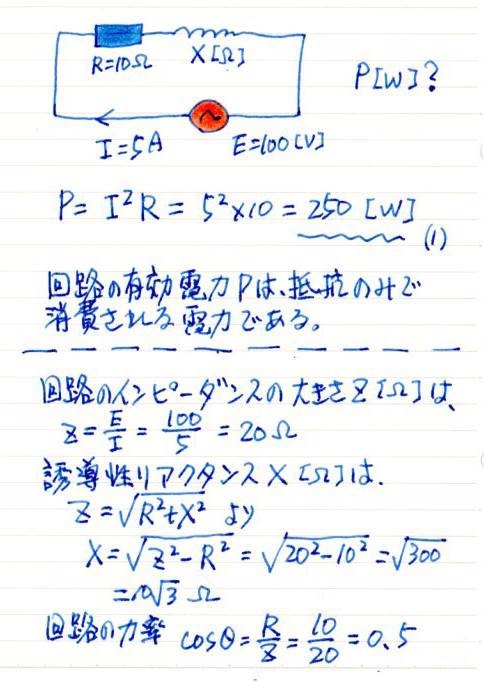 R=10Ω X[Ω]
P[W]?
I=5A E=100[V]
P= I²R = 5²×10 = 250 [W]
(1)
回路の有効電力Pは、抵抗のみで
消費される電力である。
回路のインピーダンスの大きさZ[Ω]は、
Z = E/I = 100/5 = 20Ω
誘導性リアクタンスX[Ω]は、
Z = √R²+X² より
X = √Z²-R² = √20²-10² = √300
= 10√3 Ω
回路の力率 cosθ = R/Z = 10/20 = 0.5